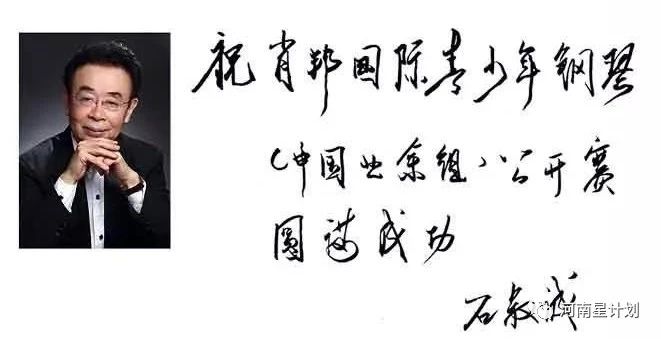 祝肖邦国际青少年钢琴
（中国业余组）公开赛
圆满成功
石叔诚
河南星计划